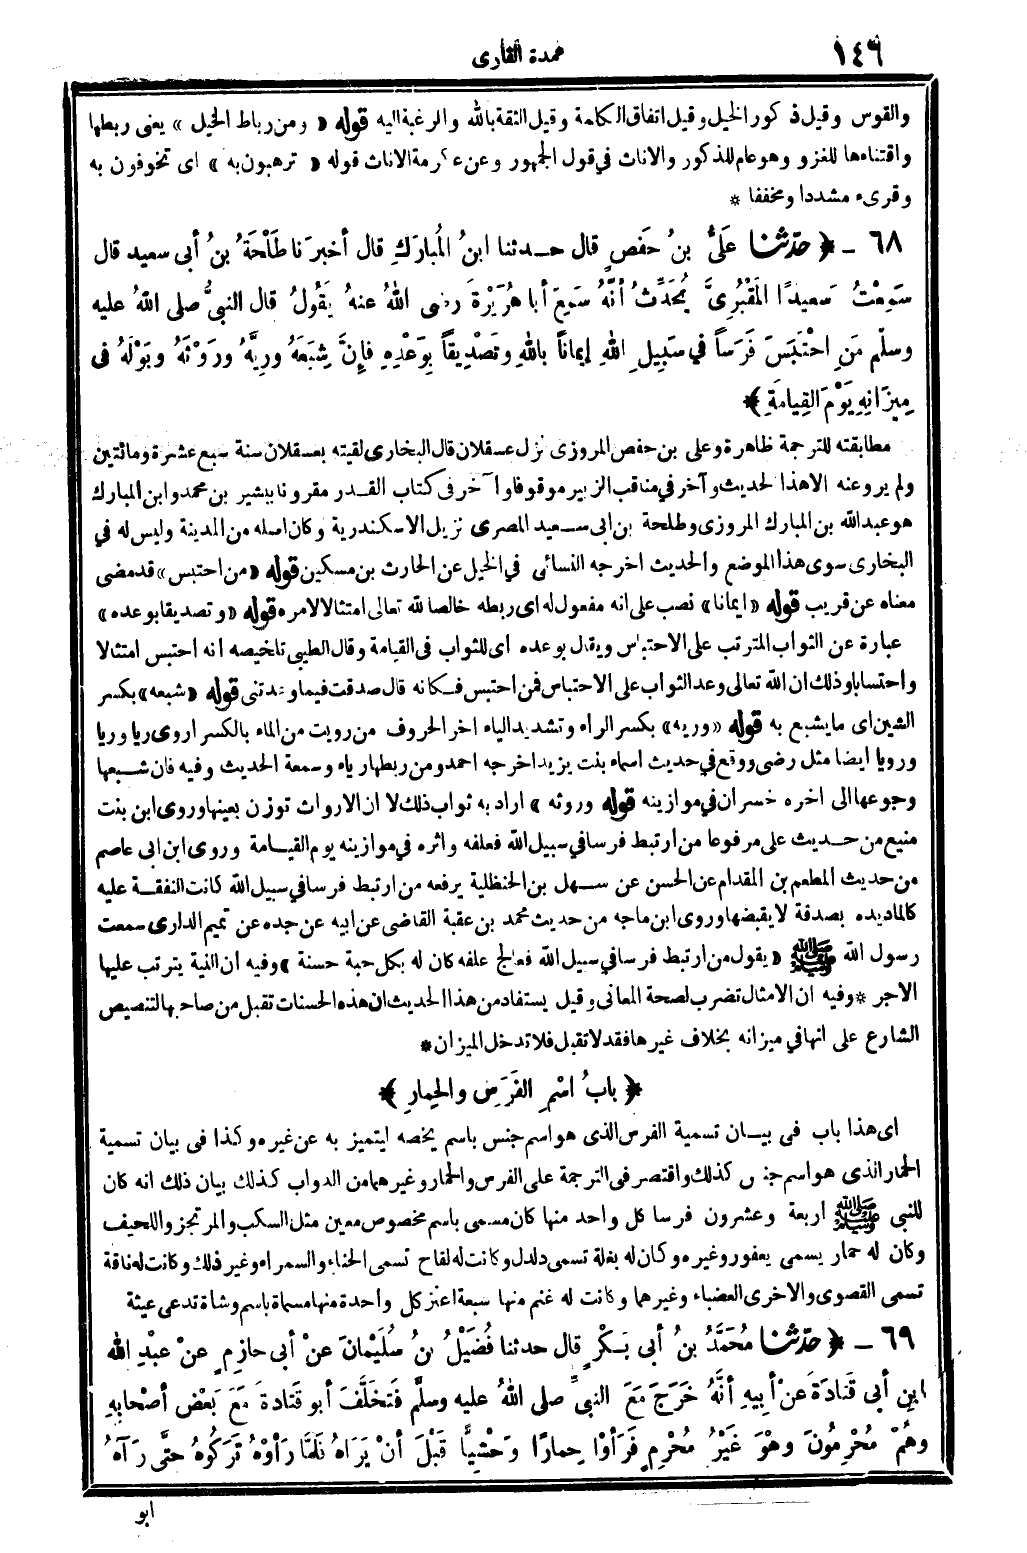 ١٤٦
عمدة القارى
والقوس وقيل ذكور الخيل وقيل اتفاق الكلمة وقيل الثقة بالله والرغبة اليه قوله «ومن رباط الخيل» يعنى ربطها
واقتناءها للغزو وهو عام للذكور والاناث في قول الجمهور وعن عكرمة الاناث قوله «ترهبون به» اى تخوفون به
وقرىء مشددا ومخففا *
٦٨ ـ ﴿ حَدَّثَنا عَلِيُّ بنُ حَفْصٍ قال حـدثنا ابنُ المُبارَكِ قال أخبرَنا طَلْحَةُ بنُ أبى سعيد قال
سَمِعْتُ سَعيدًا المَقْبُرِىَّ يُحَدِّثُ أنَّهُ سَمِعَ أبا هُرَيْرَةَ رضى اللهُ عنهُ يَقُولُ قال النبىُّ صلى اللهُ عليه
وسلّم مَنِ احْتَبَسَ فَرَساً في سَبِيلِ اللهِ إيماناً باللهِ وتَصْدِيقاً بِوَعْدِهِ فإِنَّ شِبَعَهُ ورِيَّهُ ورَوْثَهُ وبَوْلَهُ فى
مِيزَانِهِ يَوْمَ القِيامَةِ ﴾
مطابقته للترجمة ظاهرة وعلى بن حفص المروزى نزل عسقلان قال البخارى لقيته بعسقلان سنة سبع عشرة ومائتين
ولم يرو عنه الا هذا الحديث وآخر في مناقب الزبير موقوفا وآخر فى كتاب القـدر مقرونا ببشير بن محمد وابن المبارك
هو عبدالله بن المبارك المروزى وطلحة بن ابى سـعيد المصرى نزيل الاسكندرية وكان اصله من المدينة وليس له في
البخارى سوى هذا الموضع والحديث اخرجه النسائى في الخيل عن الحارث بن مسكين قوله «من احتبس» قد مضى
معناه عن قريب قوله «ايمانا» نصب على انه مفعول له اى ربطه خالصا لله تعالى امتثالا لامره قوله «وتصديقا بوعده»
عبارة عن الثواب المترتب على الاحتباس ويقال بوعده اى للثواب فى القيامة وقال الطيبى تلخيصه انه احتبس امتثالا
واحتسابا وذلك ان الله تعالى وعد الثواب على الاحتباس فمن احتبس فـكانه قال صدقت فيما وعدتنى قوله «شبعه» بكسر
الشين اى ما يشبع به قوله «وريه» بكسر الراء وتشديد الياء اخر الحروف من رويت من الماء بالكسر اروى ريا وريا
ورويا ايضا مثل رضى ووقع في حديث اسماء بنت يزيد اخرجه احمد ومن ربطها رياء وسمعة الحديث وفيه فان شـبعها
وجوعها الى اخره خسران في موازينه قوله وروثه» اراد به ثواب ذلك لا ان الارواث توزن بعينها وروى ابن بنت
منيع من حـديث على مرفوعا من ارتبط فرسا في سبيل الله فعلفه واثره في موازينه يوم القيـامة وروى ابن ابى عاصم
من حديث المطعم بن المقدام عن الحسن عن سـهل بن الحنظلية يرفعه من ارتبط فرسا في سبيل الله كانت النفقـة عليه
كالماد يده بصدقة لا يقبضها وروى ابن ماجه من حديث محمد بن عقبة القاضى عن ابيه عن جده عن تميم الدارى سمعت
رسول الله ﷺ «يقول من ارتبط فرسا في سبيل الله فعالج علفه كان له بكل حبة حسنة» وفيه ان النية يترتب عليها
الاجر * وفيه ان الامثال تضرب لصحة المعانى وقيل يستفاد من هذا الحديث ان هذه الحسنات تقبل من صاحبها لتنصيص
الشارع على انها في ميزانه بخلاف غيرها فقد لا تقبل فلا تدخل الميزان *
﴿ بابُ اسْمِ الفَرَسِ والحِمارِ ﴾
اى هذا باب فى بيـان تسمية الفرس الذى هو اسم جنس باسم يخصه ليتميز به عن غيره وكذا فى بيان تسمية
الحمار الذى هو اسم جنس كذلك واقتصر فى الترجمة على الفرس والحمار وغيرهما من الدواب كذلك بيان ذلك انه كان
للنبى ﷺ اربعة وعشرون فرسا كل واحد منها كان مسمى باسم مخصوص معين مثل السكب والمرتجز واللحيف
وكان له حمار يسمى يعفور وغيره وكان له بغلة تسمى دلدل وكانت له لقاح تسمى الحناء والسمراء وغير ذلك وكانت له ناقة
تسمى القصوى والاخرى العضباء وغيرهما وكانت له غنم منها سبعة اعنز كل واحدة منها مسماة باسم وشاة تدعى عيثة
٦٩ ـ ﴿ حَدَّثَنا مُحَمَّدُ بنُ أبى بَـكْرٍ قال حدثنا فُضَيْلُ بنُ سُلَيْمانَ عنْ أبى حازِمٍ عنْ عبْدِ الله
ابنِ أبى قَتادَةَ عَنْ أبِيهِ أنَّهُ خَرَجَ مَعَ النبىِّ صلى اللهُ عليه وسلَّم فَتَخَلَّفَ أبو قَتادةَ مَعَ بَعْضِ أصْحابِهِ
وهُمْ مُحْرِمُونَ وهْوَ غَيْرُ مُحْرِمٍ فَرَأوْا حِمارًا وَحْشِيًّا قَبْلَ أنْ يَرَاهُ فَلَمَّا رَأوْهُ تَرَكُوهُ حتَّى رَآهُ
ابو